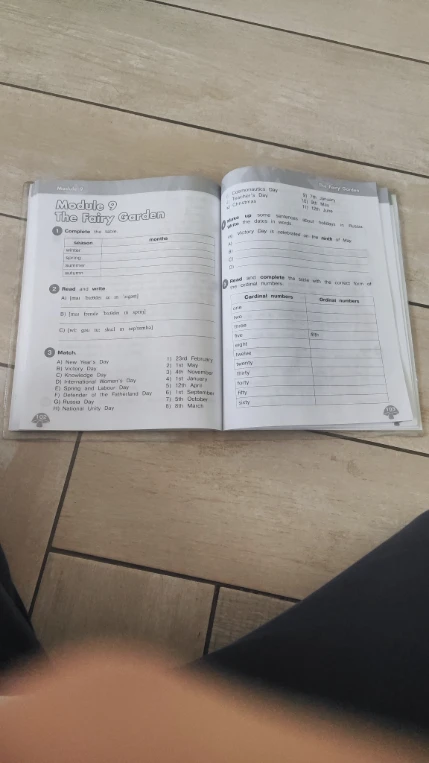 Module 9
The Fairy Garden
1 Complete the table.
season months
winter
spring
summer
autumn
2 Read and write
A)
B)
C)
3 Match.
A) New Year's Day
B) Victory Day
C) Knowledge Day
D) International Women's Day
E) Spring and Labour Day
F) Defender of the Fatherland Day
G) Russia Day
H) National Unity Day
1) 23rd February
2) 1st May
3) 4th November
4) 1st January
5) 12th April
6) 1st September
7) 5th October
8) 8th March
The Fairy Garden
Cosmonautics Day
Teacher's Day
Christmas
9) 7th January
10) 9th May
11) 12th June
some sentences about holidays in Russia.
Write the dates in words.
Victory Day is celebrated on the ninth of May.
B)
C)
D)
Read and complete the table with the correct form of
the ordinal numbers.
Cardinal numbers Ordinal numbers
one
two
three
five fifth
eight
twelve
twenty
thirty
forty
fifty
sixty